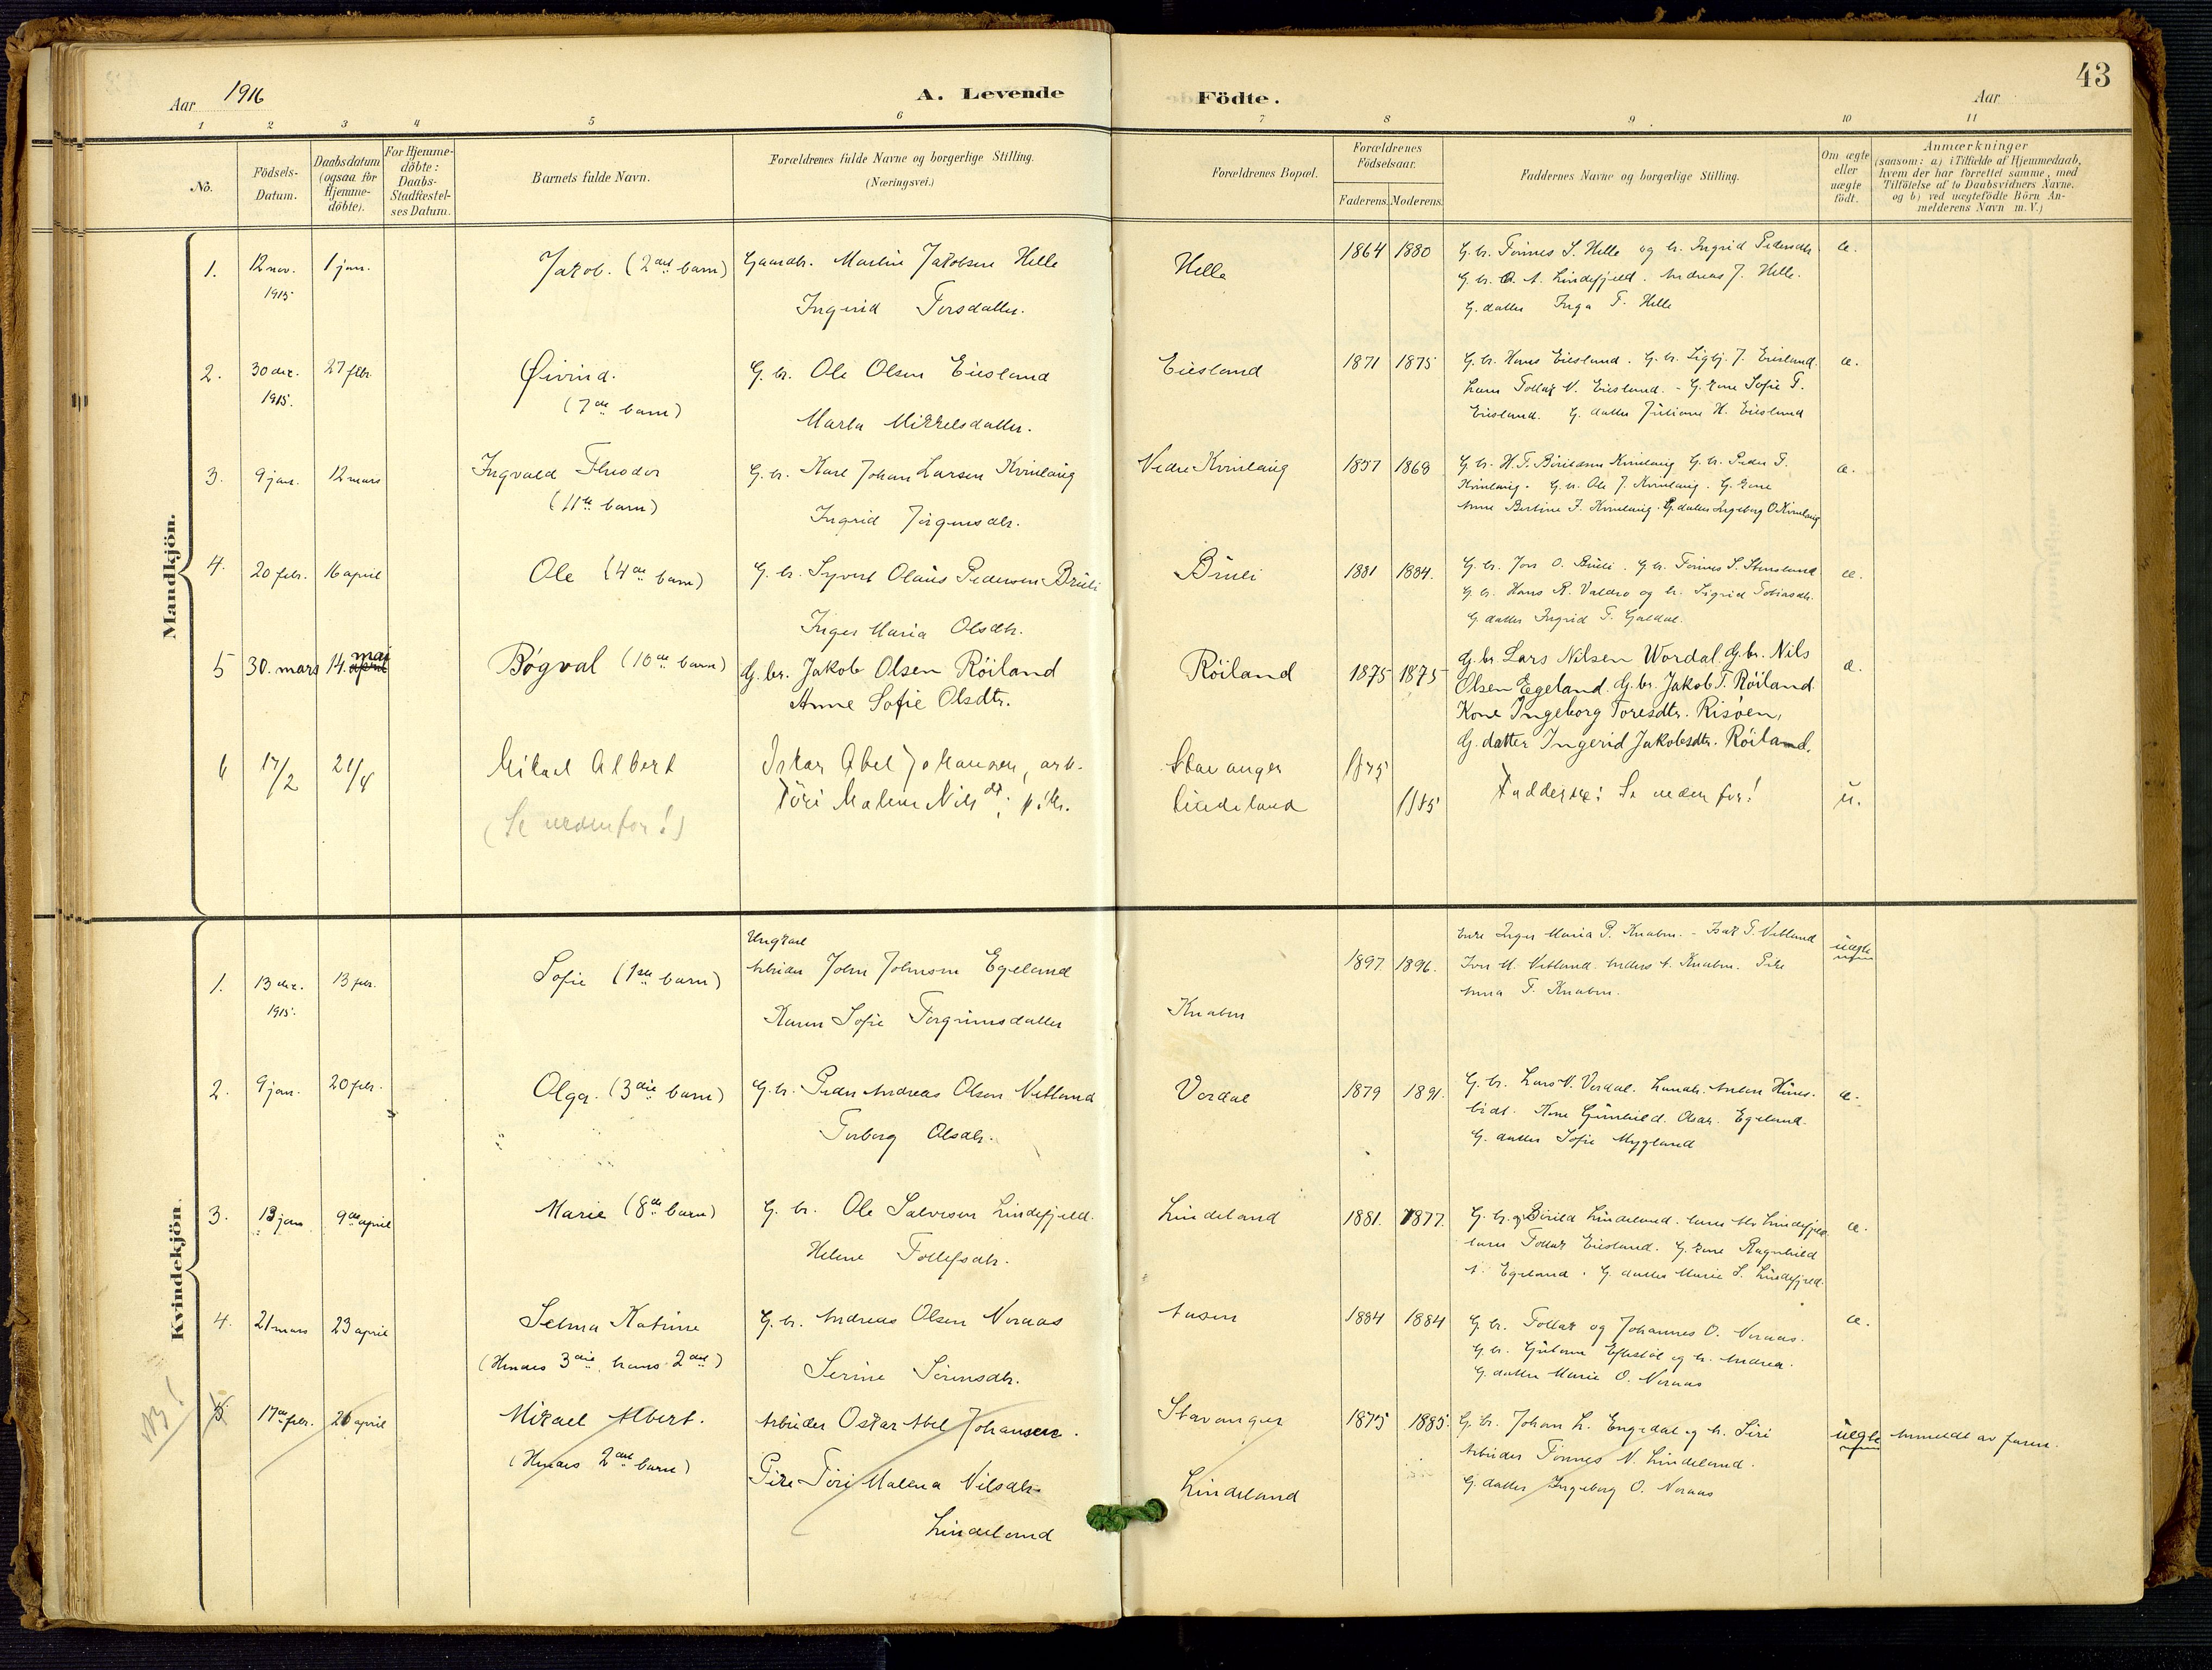 Aar 1916
A. Levende Födte.
Aar
43
1 2 3 4 5 6 7 8 9 10 11
No.
Födsels-Datum.
Daabsdatum (ogsaa for Hjemme-döbte).
For Hjemme-döbte: Daabs-Stadfæstel-ses Datum.
Barnets fulde Navn.
Forældrenes fulde Navne og borgerlige Stilling. (Næringsvei.)
Forældrenes Bopæl.
Forældrenes Födselsaar.
Faderens. Moderens.
Faddernes Navne og borgerlige Stilling.
Om ægte eller uægte födt.
Anmærkninger
(saasom: a) i Tilfælde af Hjemmedaab, hvem der har forrettet samme, med Tilföielse af to Daabsvidners Navne. og b) ved uægtefödte Börn An-melderens Navn m.V.)
Mandkjön.
1. 12 nov. 1915 1 jan. Jakob. (2det barn) Gaardbr. Martin Jakobsen Helle Helle 1864 1880 G. br. Tönnes S. Helle og h. Ingrid Pedersdtr. æ.
Ingerid Torsdatter. G. br. A. A. Lindefjeld. Andreas J. Helle.
G. datter Inga T. Helle
2. 30 dec. 1915. 27 febr. Øivind. G. br. Ole Olsen Eiesland Eiesland 1871 1875 G. br. Hans Eiesland. G. br. Sigbj. J. Eiesland. æ.
(7de barn) Marta Mikkelsdatter. Tollak N. Eiesland. - G. kone Sofie T.
Eiesland. G. datter Juliane H. Eiesland
3. 9 jan. 12 mars Ingvald Theodor G. br. Karl Johan Larsen Kvinlaug Nedre Kvinlaug 1857 1868 G. br. H. T. Kvinlaug G. br. Peder T. æ.
(11te barn) Ingrid Jörgensdtr. Kvinlaug. G. br. Ole J. Kvinlaug. G. kone
Anne Bertine J. Kvinlaug. G. datter Ingeborg O. Kvinlaug
4. 20 febr. 16 april Ole (4de barn) G. br. Syvert Olaus Pedersen Brüli Brüli 1881 1884. G. br. Jon O. Brüli. G. br. Tönnes S. Stensland æ.
Inger Maria Olsdtr. G. br. Hans R. Valdro og h. Sigrid Tobiasdtr.
G. datter Ingrid T. Galdal.
5 30. mars 14. april mai Bógval (10de barn) G. br. Jakob Olsen Röiland Röiland 1875 1875 G. br. Lars Nilsen Wordal. G. br. Nils æ.
Anne Sofie Olsdtr. Olsen Egeland. G. br. Jakob T. Röiland.
Kone Ingeborg Toresdtr. Risöen,
G. datter Ingerid Jakobsdtr. Röiland.
6 17/2 21/4 Mikael Albert Oskar Abel Johansen, arb. Stavanger 1875
Töri Malene Nilsdt; pike. Lindeland 1885 Faddere: Se nedenfor! u.
(Se nedenfor!)
Kvindekjön.
1. 13 dec. 1915. 13 febr. Sofie (1ste barn) Ungkarl Arbeider John Johnsen Egeland 1897 1896. Enke Inger Maria P. Knaben. - Isak T. Netland uegte
Karen Sofie Torgrimsdatter Knaben Iver M. Netland. Anders A. Knaben. Pike
Anna T. Knaben.
2. 9 jan. 20 febr. Olga. (3die barn) G. br. Peder Andreas Olsen Netland Vordal 1879 1891. G. br. Lars N. Vordal. Anton æ.
Torborg Olsdtr. Kone Gunhild Egeland.
G. datter Sofie Mygland
3. 13 jan. 9de april Marie (8de barn) G. br. Ole Salvesen Lindefjeld. Lindeland 1881. 1877. G. br. Lindeland. Lindefjeld æ.
Helene Tollefsdtr. Tollak Eiesland. G. kone Ragnhild
A. Egeland. G. datter Marie S. Lindefjeld.
4. 21 mars 23 april Selma Katrine G. br. Andreas Olsen Noraas Aasen 1884 1884 G. br. Tollak og Johannes O. Noraas. æ.
(Hendes 3die, hans 2det) Serine Sörensdtr. G. br. Eftestöl og h. Andrea.
G. datter Marie O. Noraas
NB!
5 17de febr. 21 april Mikael Albert. Arbeider Oskar Abel Johansen. Stavanger 1875 1885. G. br. Johan L. Engedal og h. Siri uegte Anmeldt av faren.
(Hendes 2det barn) Pike Töri Malena Nilsdtr. Lindeland Arbeider Tönnes N. Lindeland.
Lindeland G. datter Ingeborg O. Noraas